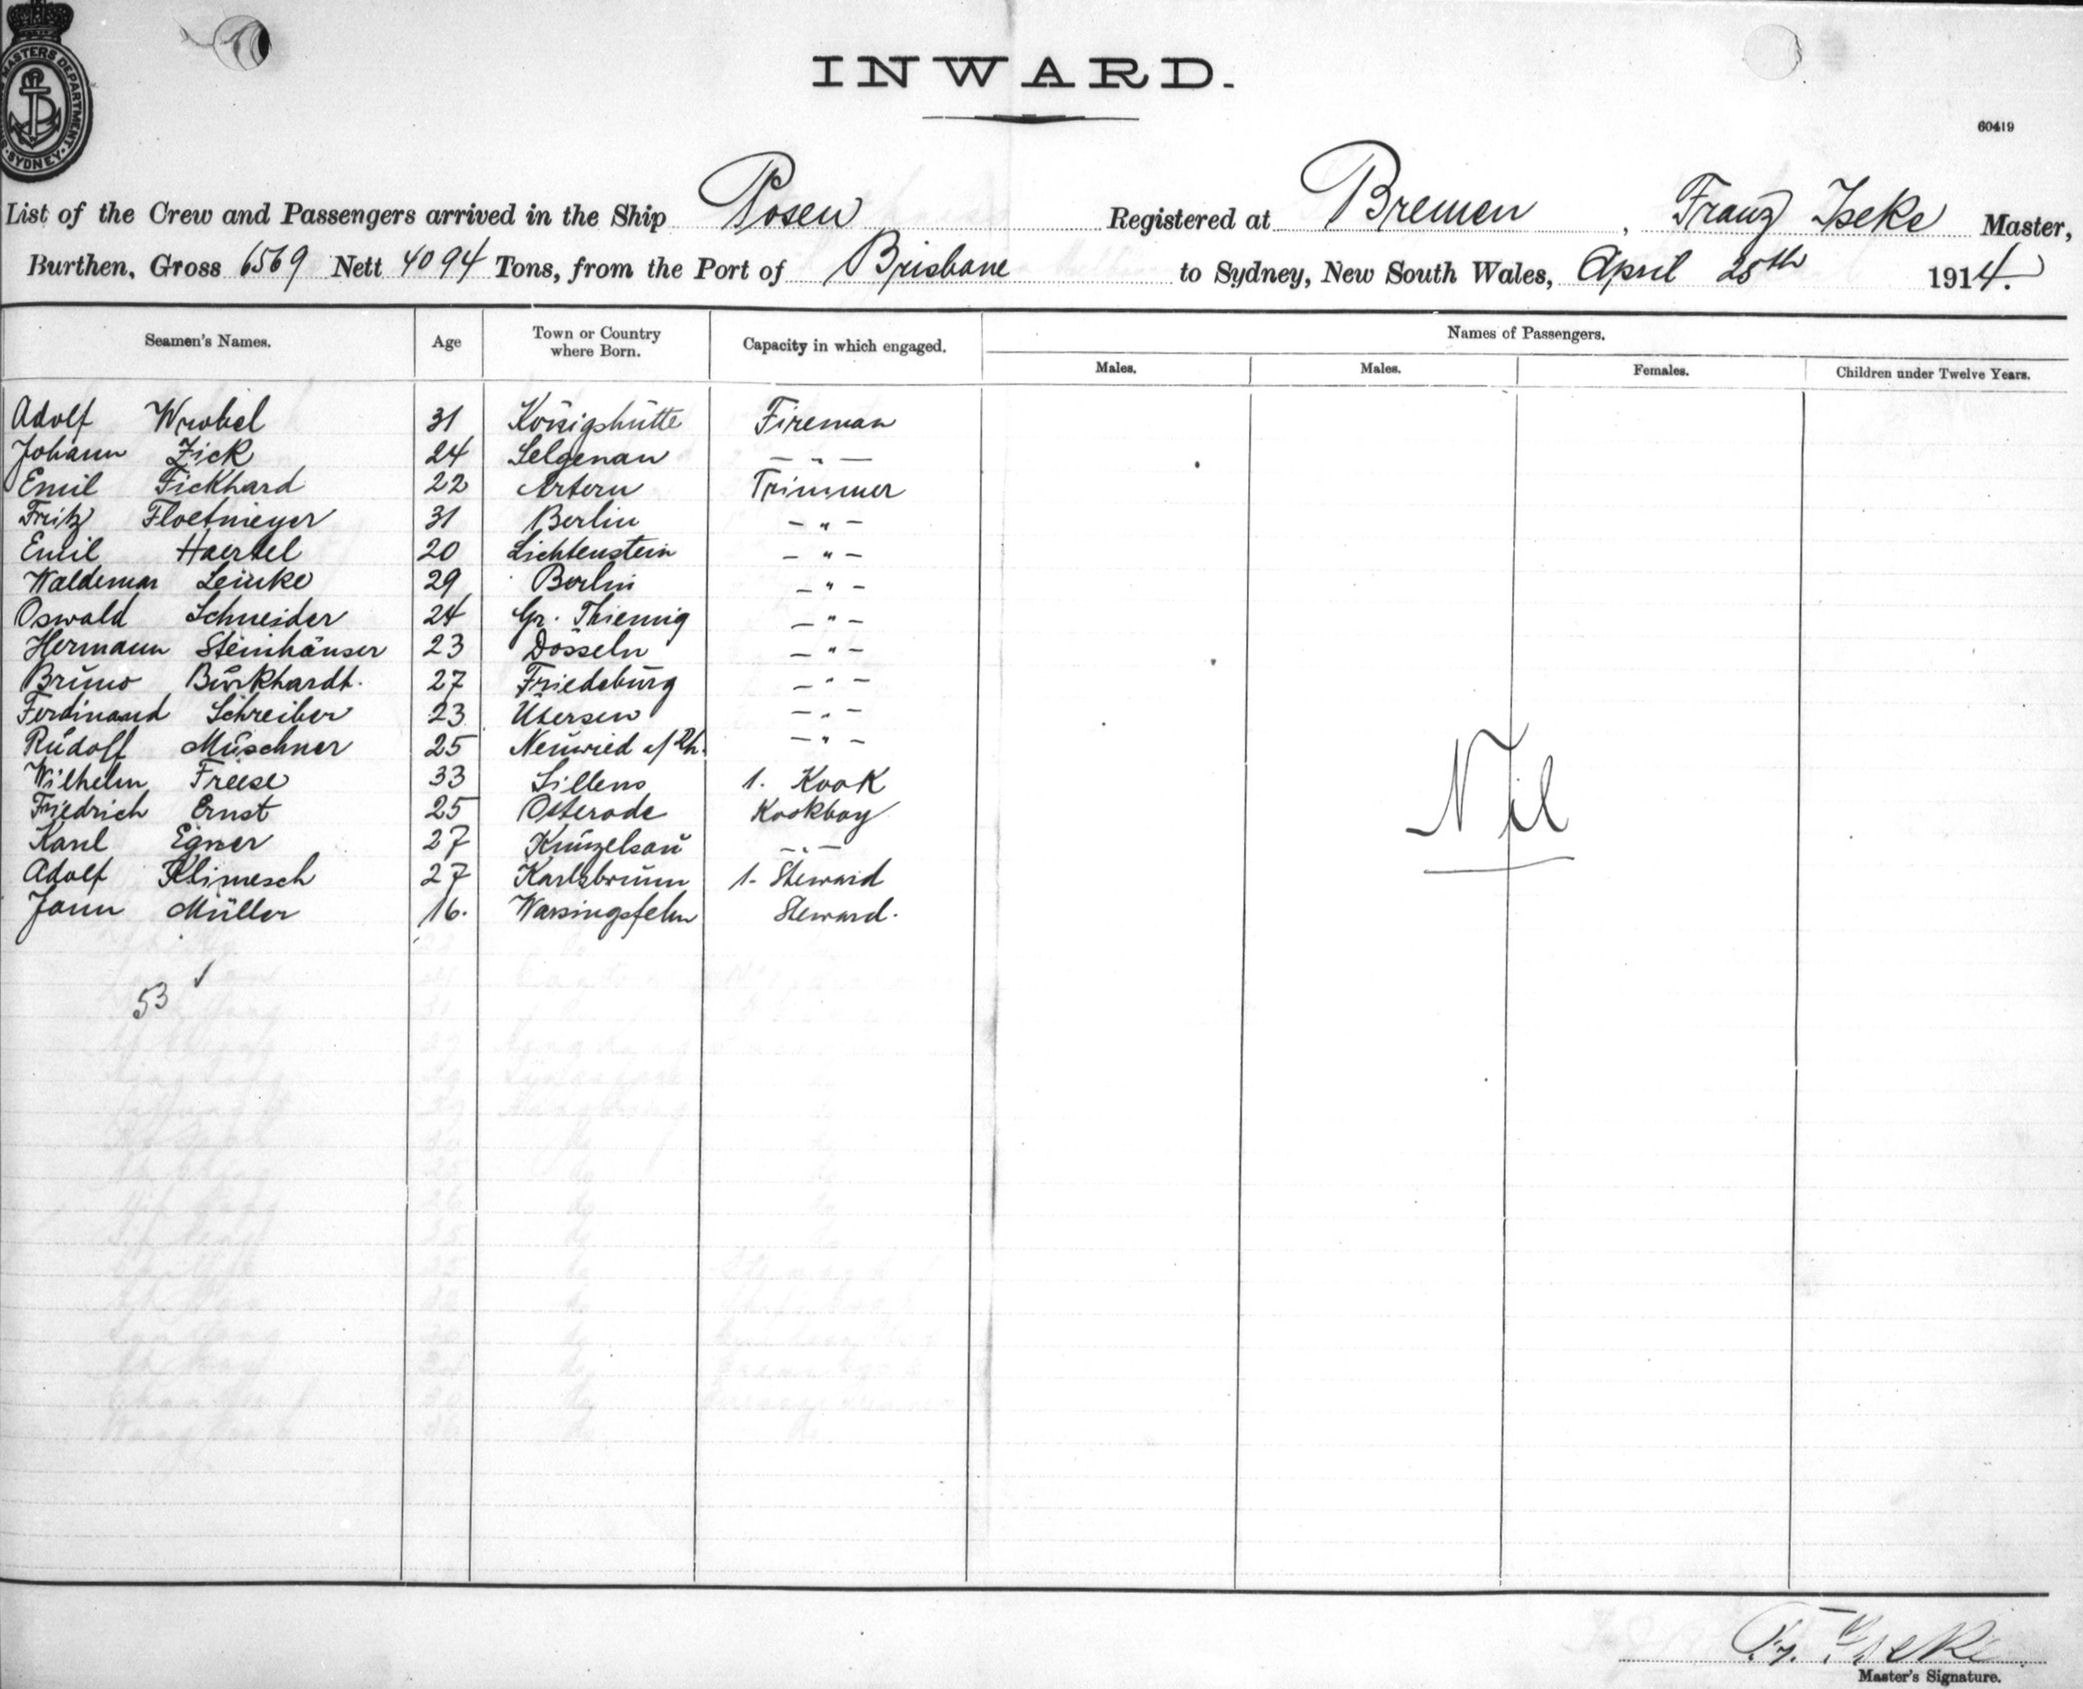 MASTERS DEPARTMENT
SYDNEY
INWARD.
60419
List of the Crew and Passengers arrived in the Ship Posen Registered at Bremen, Franz Iseke Master,
Burthen, Gross 6569 Nett 4094 Tons, from the Port of Brisbane to Sydney, New South Wales, April 25th 1914.
Seamen's Names. Age Town or Country where Born. Capacity in which engaged. Names of Passengers.
Males. Males. Females. Children under Twelve Years.
Adolf Wrobel 31 Königshütte Fireman
Johann Zick 24 Selgenau — " —
Emil Fickhard 22 Artern Trimmer
Fritz Floetmeyer 31 Berlin — " —
Emil Haertel 20 Lichtenstein — " —
Waldemar Leinke 29 Berlin — " —
Oswald Schneider 24 Gr. Thiemig — " —
Hermann Steinhäuser 23 Dösseln — " —
Bruno Burkhardt. 27 Friedeburg — " —
Ferdinand Schreiber 23 Ütersen — " —
Rudolf Müschner 25 Neuwied a/Rh. — " —
Wilhelm Freese 33 Sillens 1. Kook
Friedrich Ernst 25 Osterode Kookboy
Karl Egner 27 Künzelsau — " —
Adolf Klimesch 27 Karlsbrunn 1. Steward
Jann Müller 16. Warsingsfehn Steward.
Nil
53
Fz. Iseke
Master's Signature.